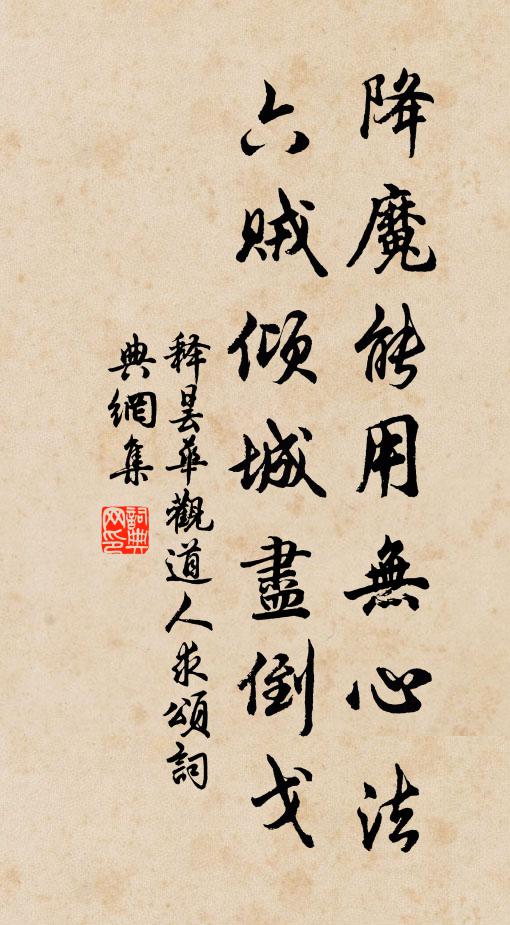 降魔能用無心法
六賊傾城盡倒戈
释曇華觀道人求頌詞
典網集
詞典
网印